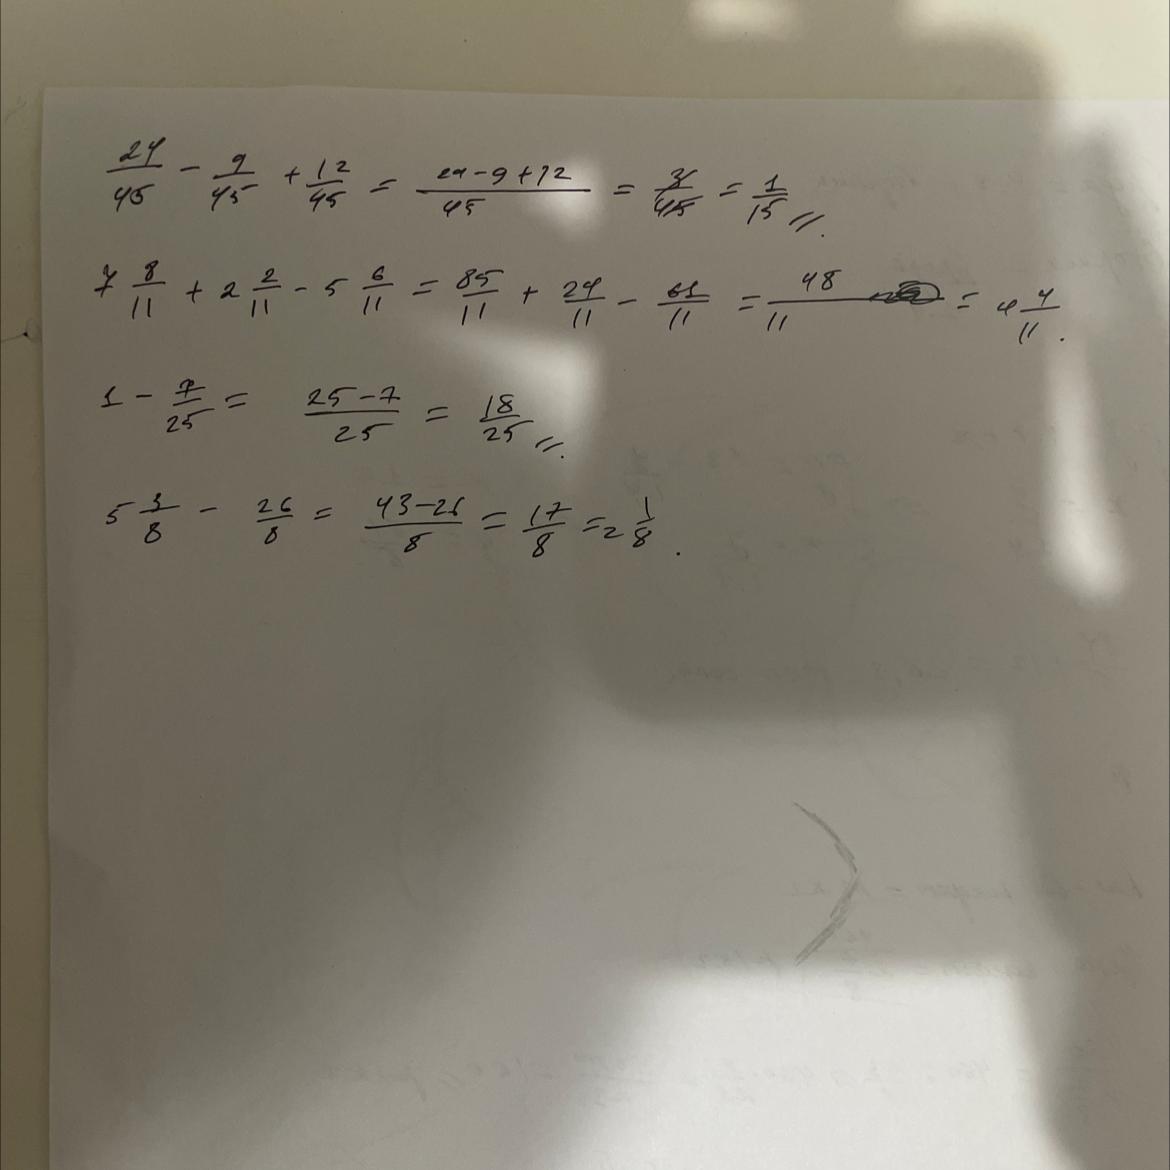 24/45 - 9/45 + 12/45 = 24-9+12/45 = 3/45 = 1/15 //.
7 8/11 + 2 2/11 - 5 6/11 = 85/11 + 24/11 - 61/11 = 48/11 = 4 4/11.
1 - 7/25 = 25-7/25 = 18/25 //.
5 3/8 - 26/8 = 43-26/8 = 17/8 = 2 1/8.